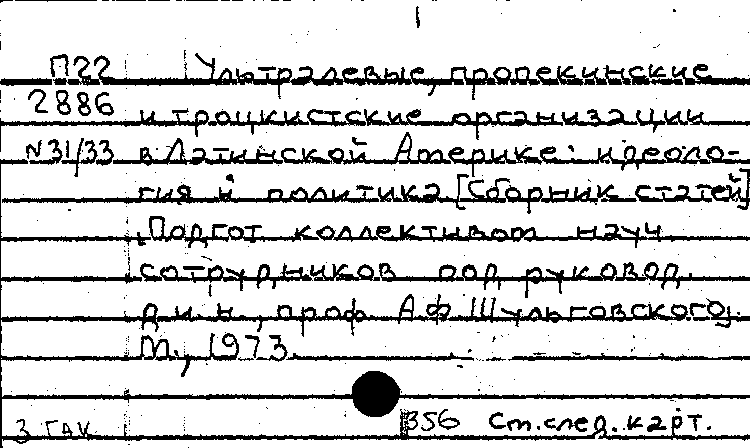 1
П22 Ультралевые, пропекинские
2886 и троцкистские организации
№31/33 в Латинской Америке: идеоло-
гия и политика [Сборник статей]
Подгот. коллективом науч.
сотрудников под руковод.
д.и.н., проф. А.Ф. Шульговского.
М., 1973.
3 ГАК 356 См.след.карт.